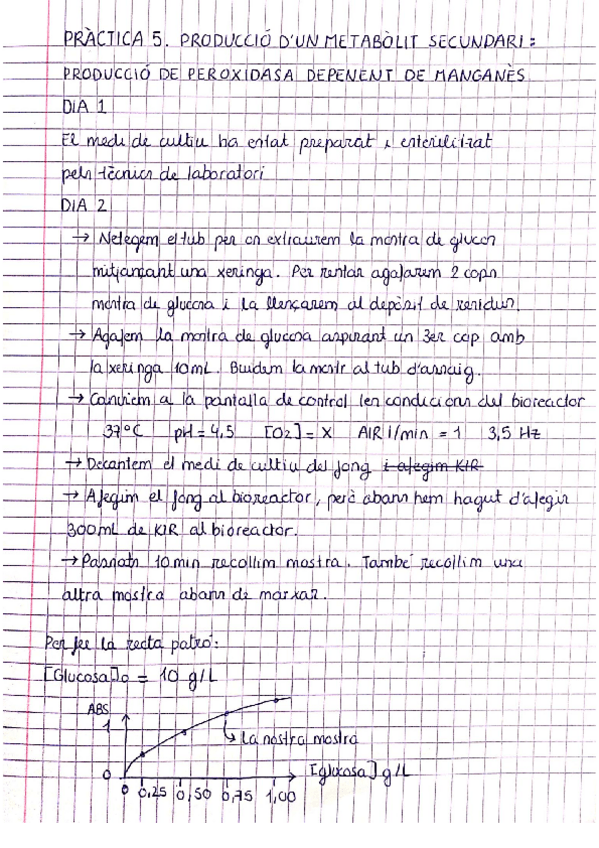 PRÀCTICA 5. PRODUCCIÓ D'UN METABÒLIT SECUNDARI:
PRODUCCIÓ DE PEROXIDASA DEPENENT DE MANGANÈS
DIA 1
El medi de cultiu ha estat preparat i esterilitzat
pels tècnics de laboratori
DIA 2
→ Netegem el tub per on extraurem la mostra de glucosa
mitjançant una xeringa. Per rentar agafarem 2 cops
mostra de glucosa i la llençarem al depòsit de residus.
→ Agafem la mostra de glucosa aspirant un 3er cop amb
la xeringa 10mL. Buidem la mostr al tub d'assaig.
→ Canviem a la pantalla de control les condicions del bioreactor
37°C pH=4,5 [O2]=X AIR l/min = 1 3,5 Hz
→ Decantem el medi de cultiu del fong i afegim KIR
→ Afegim el fong al bioreactor, però abans hem hagut d'afegir
300mL de KIR al bioreactor.
→ Passats 10min recollim mostra. També recollim una
altra mostra abans de marxar.
Per fer la recta patró:
[Glucosa]o = 10 g/L
ABS
1
↳ La nostra mostra
0
[glucosa] g/L
0 0,25 0,50 0,75 1,00